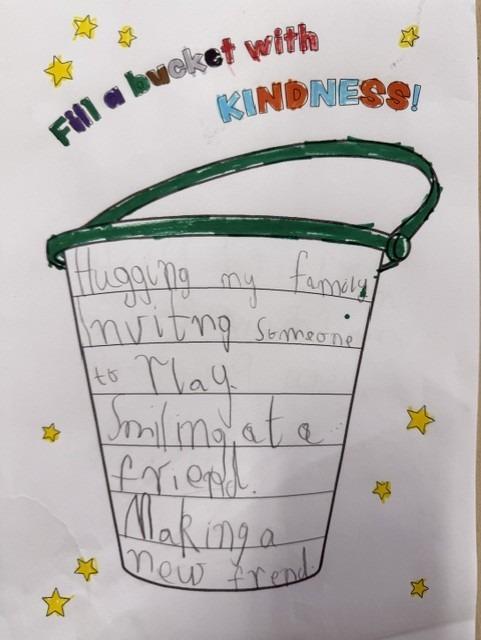 Fill a bucket with
KINDNESS!
Hugging my family
Invitng someone
to Play.
Smiling at a
friend.
Making a
new frend